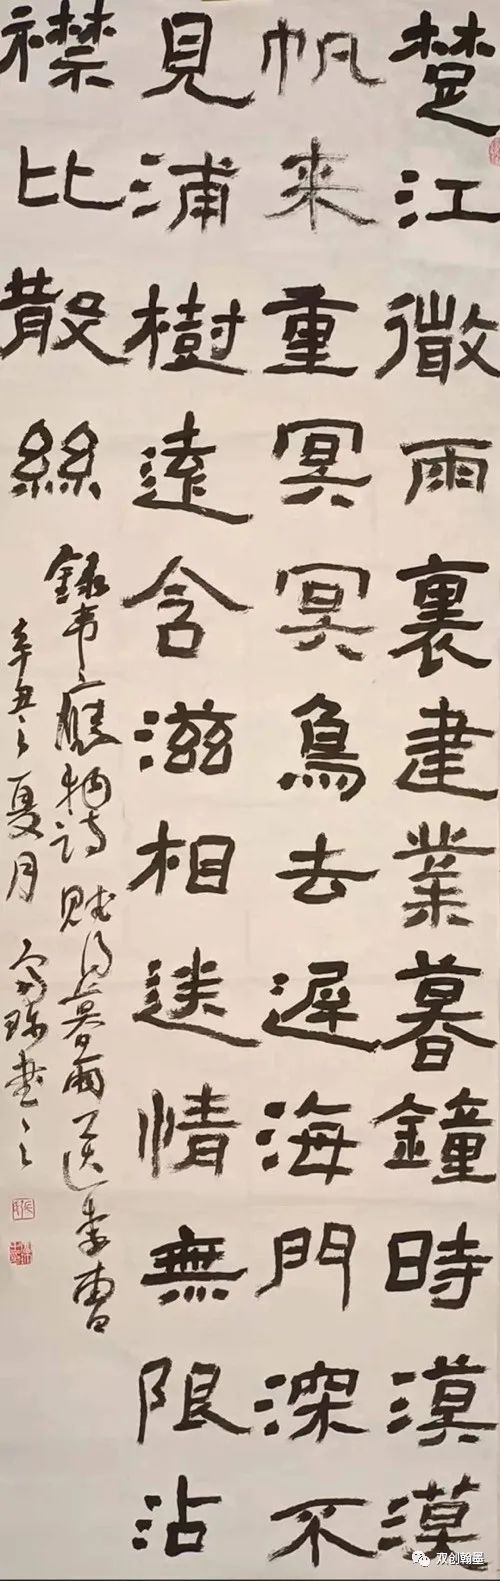 楚江微雨裏建業暮鐘時漠漠
帆来重冥冥鳥去遲海門深不
見浦樹遠含滋相送情無限沾
襟比散絲
錄韦應物诗赋得暮雨送李曹
辛丑之夏月书之
双创翰墨